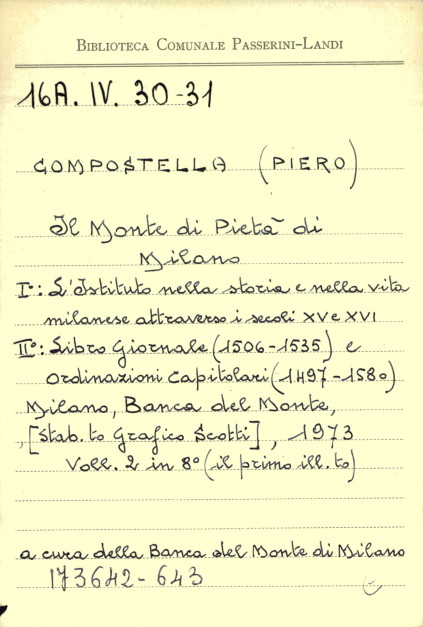 BIBLIOTECA COMUNALE PASSERINI-LANDI
16A. IV. 30-31
COMPOSTELLA (PIERO)
Il Monte di Pietà di
Milano
I°: L'Istituto nella storia e nella vita
milanese attraverso i secoli XV e XVI
II°: Libro Giornale (1506-1535) e
Ordinazioni Capitolari (1497-1580)
Milano, Banca del Monte,
[Stab.to Grafico Scotti], 1973
Voll. 2 in 8° (il primo ill.to)
a cura della Banca del Monte di Milano
173642-643